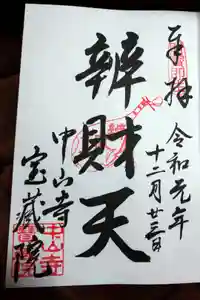 奉拝
令和元年
十二月廿三日
辨財天
中山寺
宝蔵院